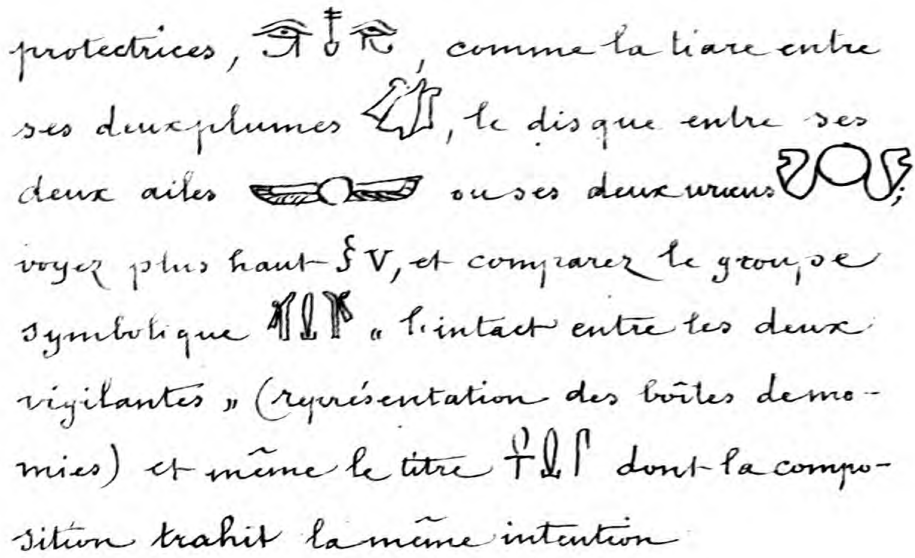 protectrices, 𓂀𓄤𓂀, comme la tiare entre
ses deux plumes, le disque entre ses
deux ailes ou ses deux uræus;
voyez plus haut § V, et comparez le groupe
symbolique "l'intact entre les deux
vigilantes" (représentation des boîtes de mo-
mies) et même le titre 𓋹𓍰𓋴 dont la compo-
sition trahit la même intention